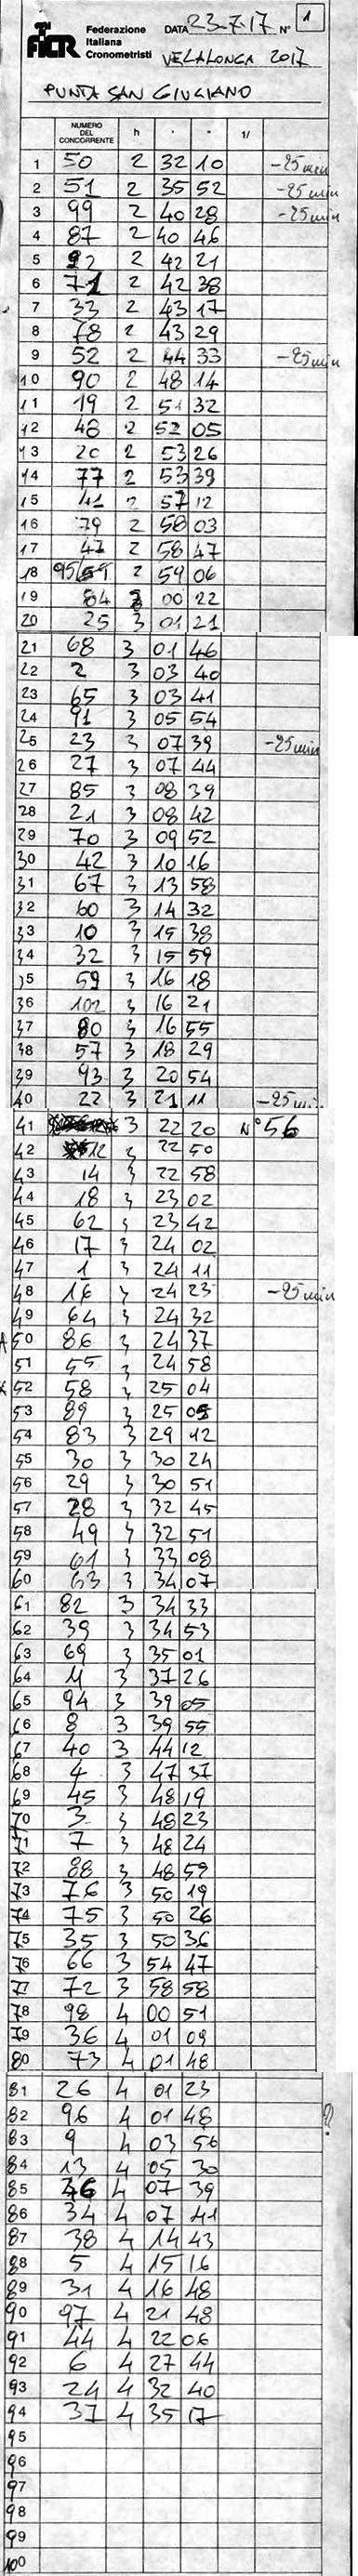 FICR Federazione Italiana Cronometristi DATA 23-7-17 N° 1
VELALONGA 2017
PUNTA SAN GIULIANO
NUMERO DEL CONCORRENTE h ' " 1/
1 50 2 32 10 -25 min
2 51 2 35 52 -25 min
3 99 2 40 28 -25 min
4 87 2 40 46
5 92 2 42 21
6 71 2 42 38
7 33 2 43 17
8 78 2 43 29
9 52 2 44 33 -25 min
10 90 2 48 14
11 19 2 51 32
12 48 2 52 05
13 20 2 53 26
14 77 2 53 39
15 41 2 57 12
16 79 2 58 03
17 47 2 58 47
18 95/54 2 59 06
19 84 3 00 22
20 25 3 01 21
21 68 3 01 46
22 2 3 03 40
23 65 3 03 41
24 91 3 05 54
25 23 3 07 39 -25 min
26 27 3 07 44
27 85 3 08 39
28 21 3 08 42
29 70 3 09 52
30 42 3 10 16
31 67 3 13 58
32 60 3 14 32
33 10 3 15 38
34 32 3 15 59
35 59 3 16 18
36 102 3 16 21
37 80 3 16 55
38 57 3 18 29
39 93 3 20 54
40 22 3 21 11 -25 min
41 3 22 20 N° 56
42 12 3 22 50
43 14 3 22 58
44 18 3 23 02
45 62 3 23 42
46 17 3 24 02
47 1 3 24 11
48 16 3 24 23 -25 min
49 64 3 24 32
50 86 3 24 37
51 55 3 24 58
52 58 3 25 04
53 89 3 25 05
54 83 3 29 12
55 30 3 30 24
56 29 3 30 51
57 28 3 32 45
58 49 3 32 51
59 61 3 33 08
60 63 3 34 07
61 82 3 34 33
62 39 3 34 53
63 69 3 35 01
64 11 3 37 26
65 94 3 39 05
66 8 3 39 55
67 40 3 44 12
68 4 3 47 37
69 45 3 48 19
70 3 3 48 23
71 7 3 48 24
72 88 3 48 59
73 76 3 50 19
74 75 3 50 26
75 35 3 50 36
76 66 3 54 47
77 72 3 58 58
78 98 4 00 51
79 36 4 01 09
80 73 4 01 48
81 26 4 01 23
82 96 4 01 48 ?
83 9 4 03 56
84 13 4 05 30
85 46 4 07 39
86 34 4 07 41
87 38 4 14 43
88 5 4 15 16
89 31 4 16 48
90 97 4 21 48
91 44 4 22 06
92 6 4 27 44
93 24 4 32 40
94 37 4 35 17
95
96
97
98
99
100